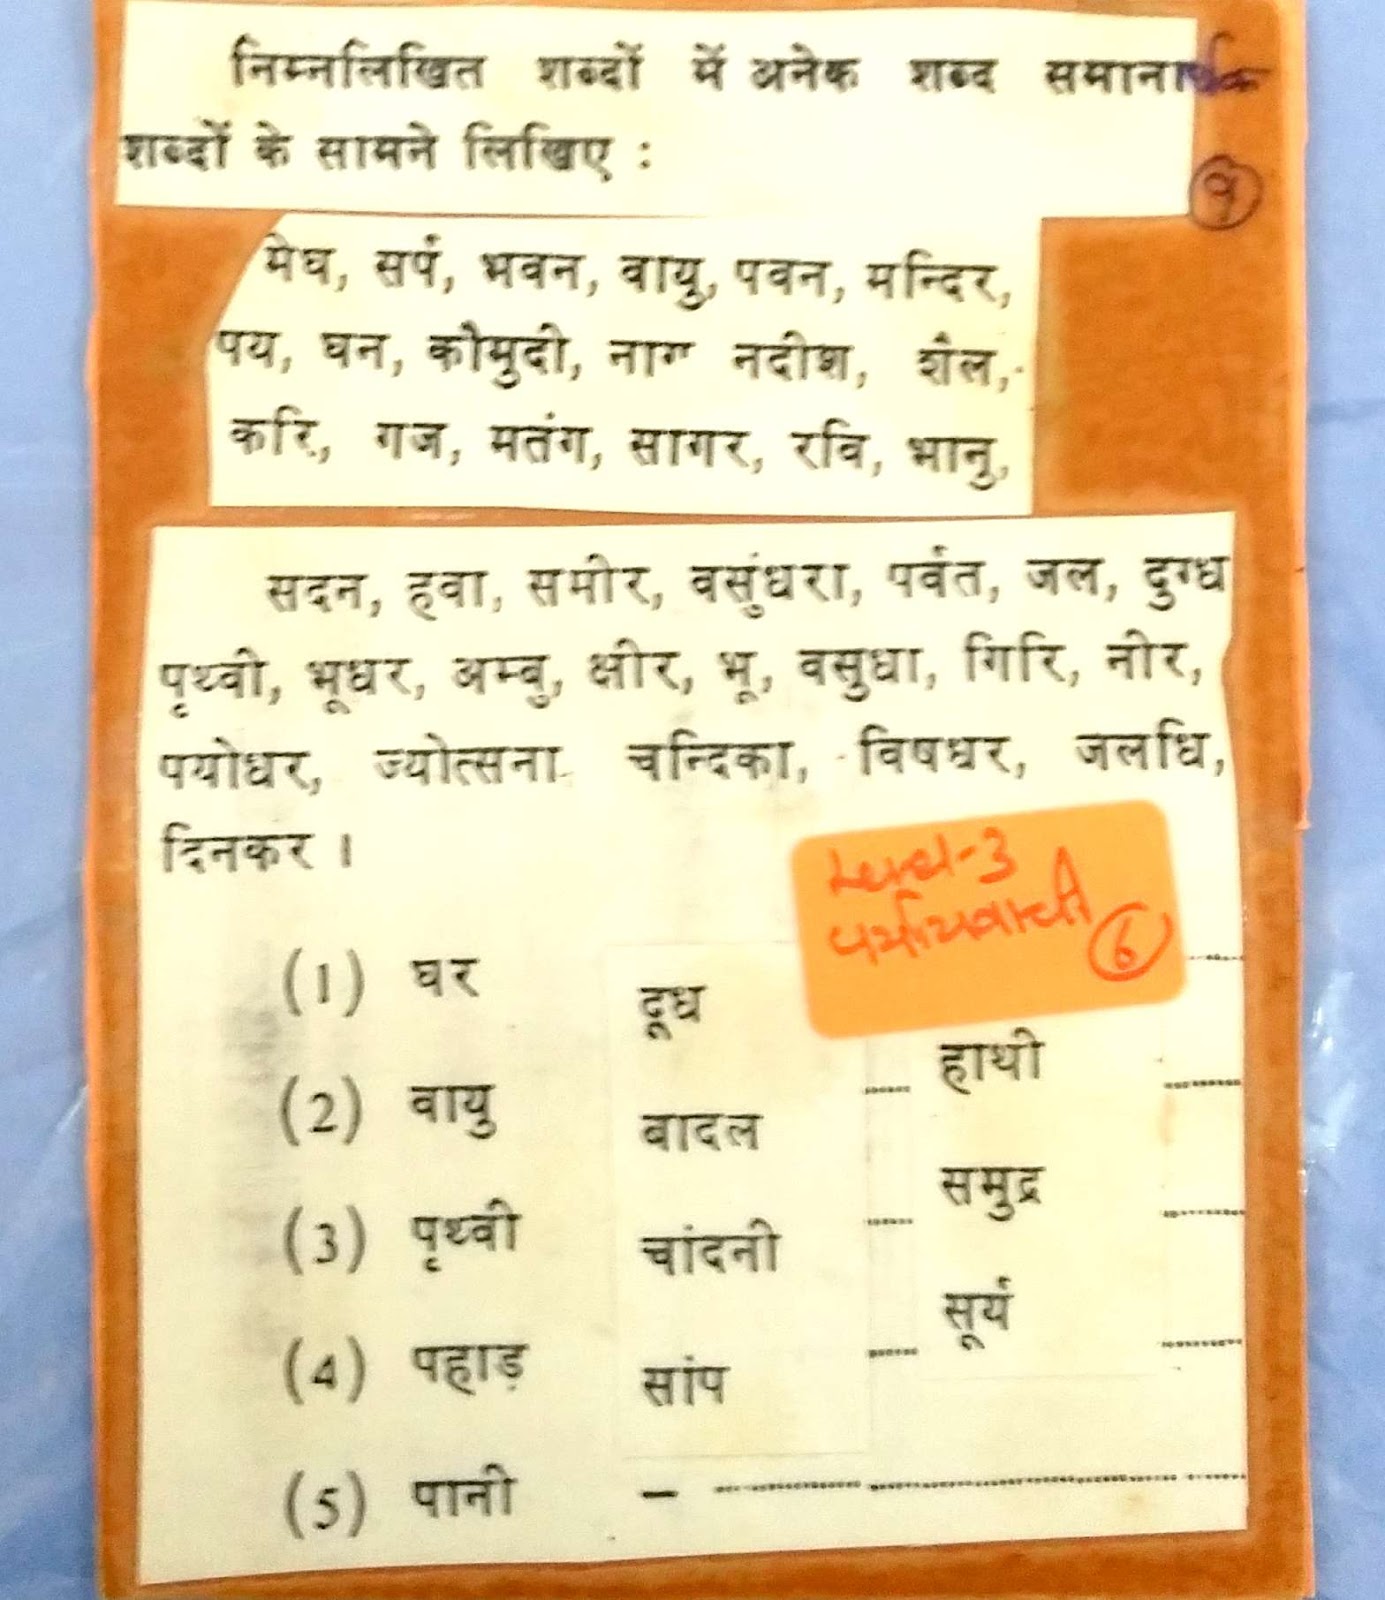 निम्नलिखित शब्दों में अनेक शब्द समानार्थक
शब्दों के सामने लिखिए :
१
मेघ, सर्प, भवन, वायु, पवन, मन्दिर,
पय, घन, कौमुदी, नाग नदीश, शैल,
करि, गज, मतंग, सागर, रवि, भानु,
सदन, हवा, समीर, वसुंधरा, पर्वत, जल, दुग्ध
पृथ्वी, भूधर, अम्बु, क्षीर, भू, वसुधा, गिरि, नीर,
पयोधर, ज्योत्सना चन्दिका, विषधर, जलधि,
दिनकर ।
Level-3
पर्यायवाची 6
(1) घर दूध
हाथी
(2) वायु बादल
समुद्र
(3) पृथ्वी चांदनी
सूर्य
(4) पहाड़ सांप
(5) पानी –